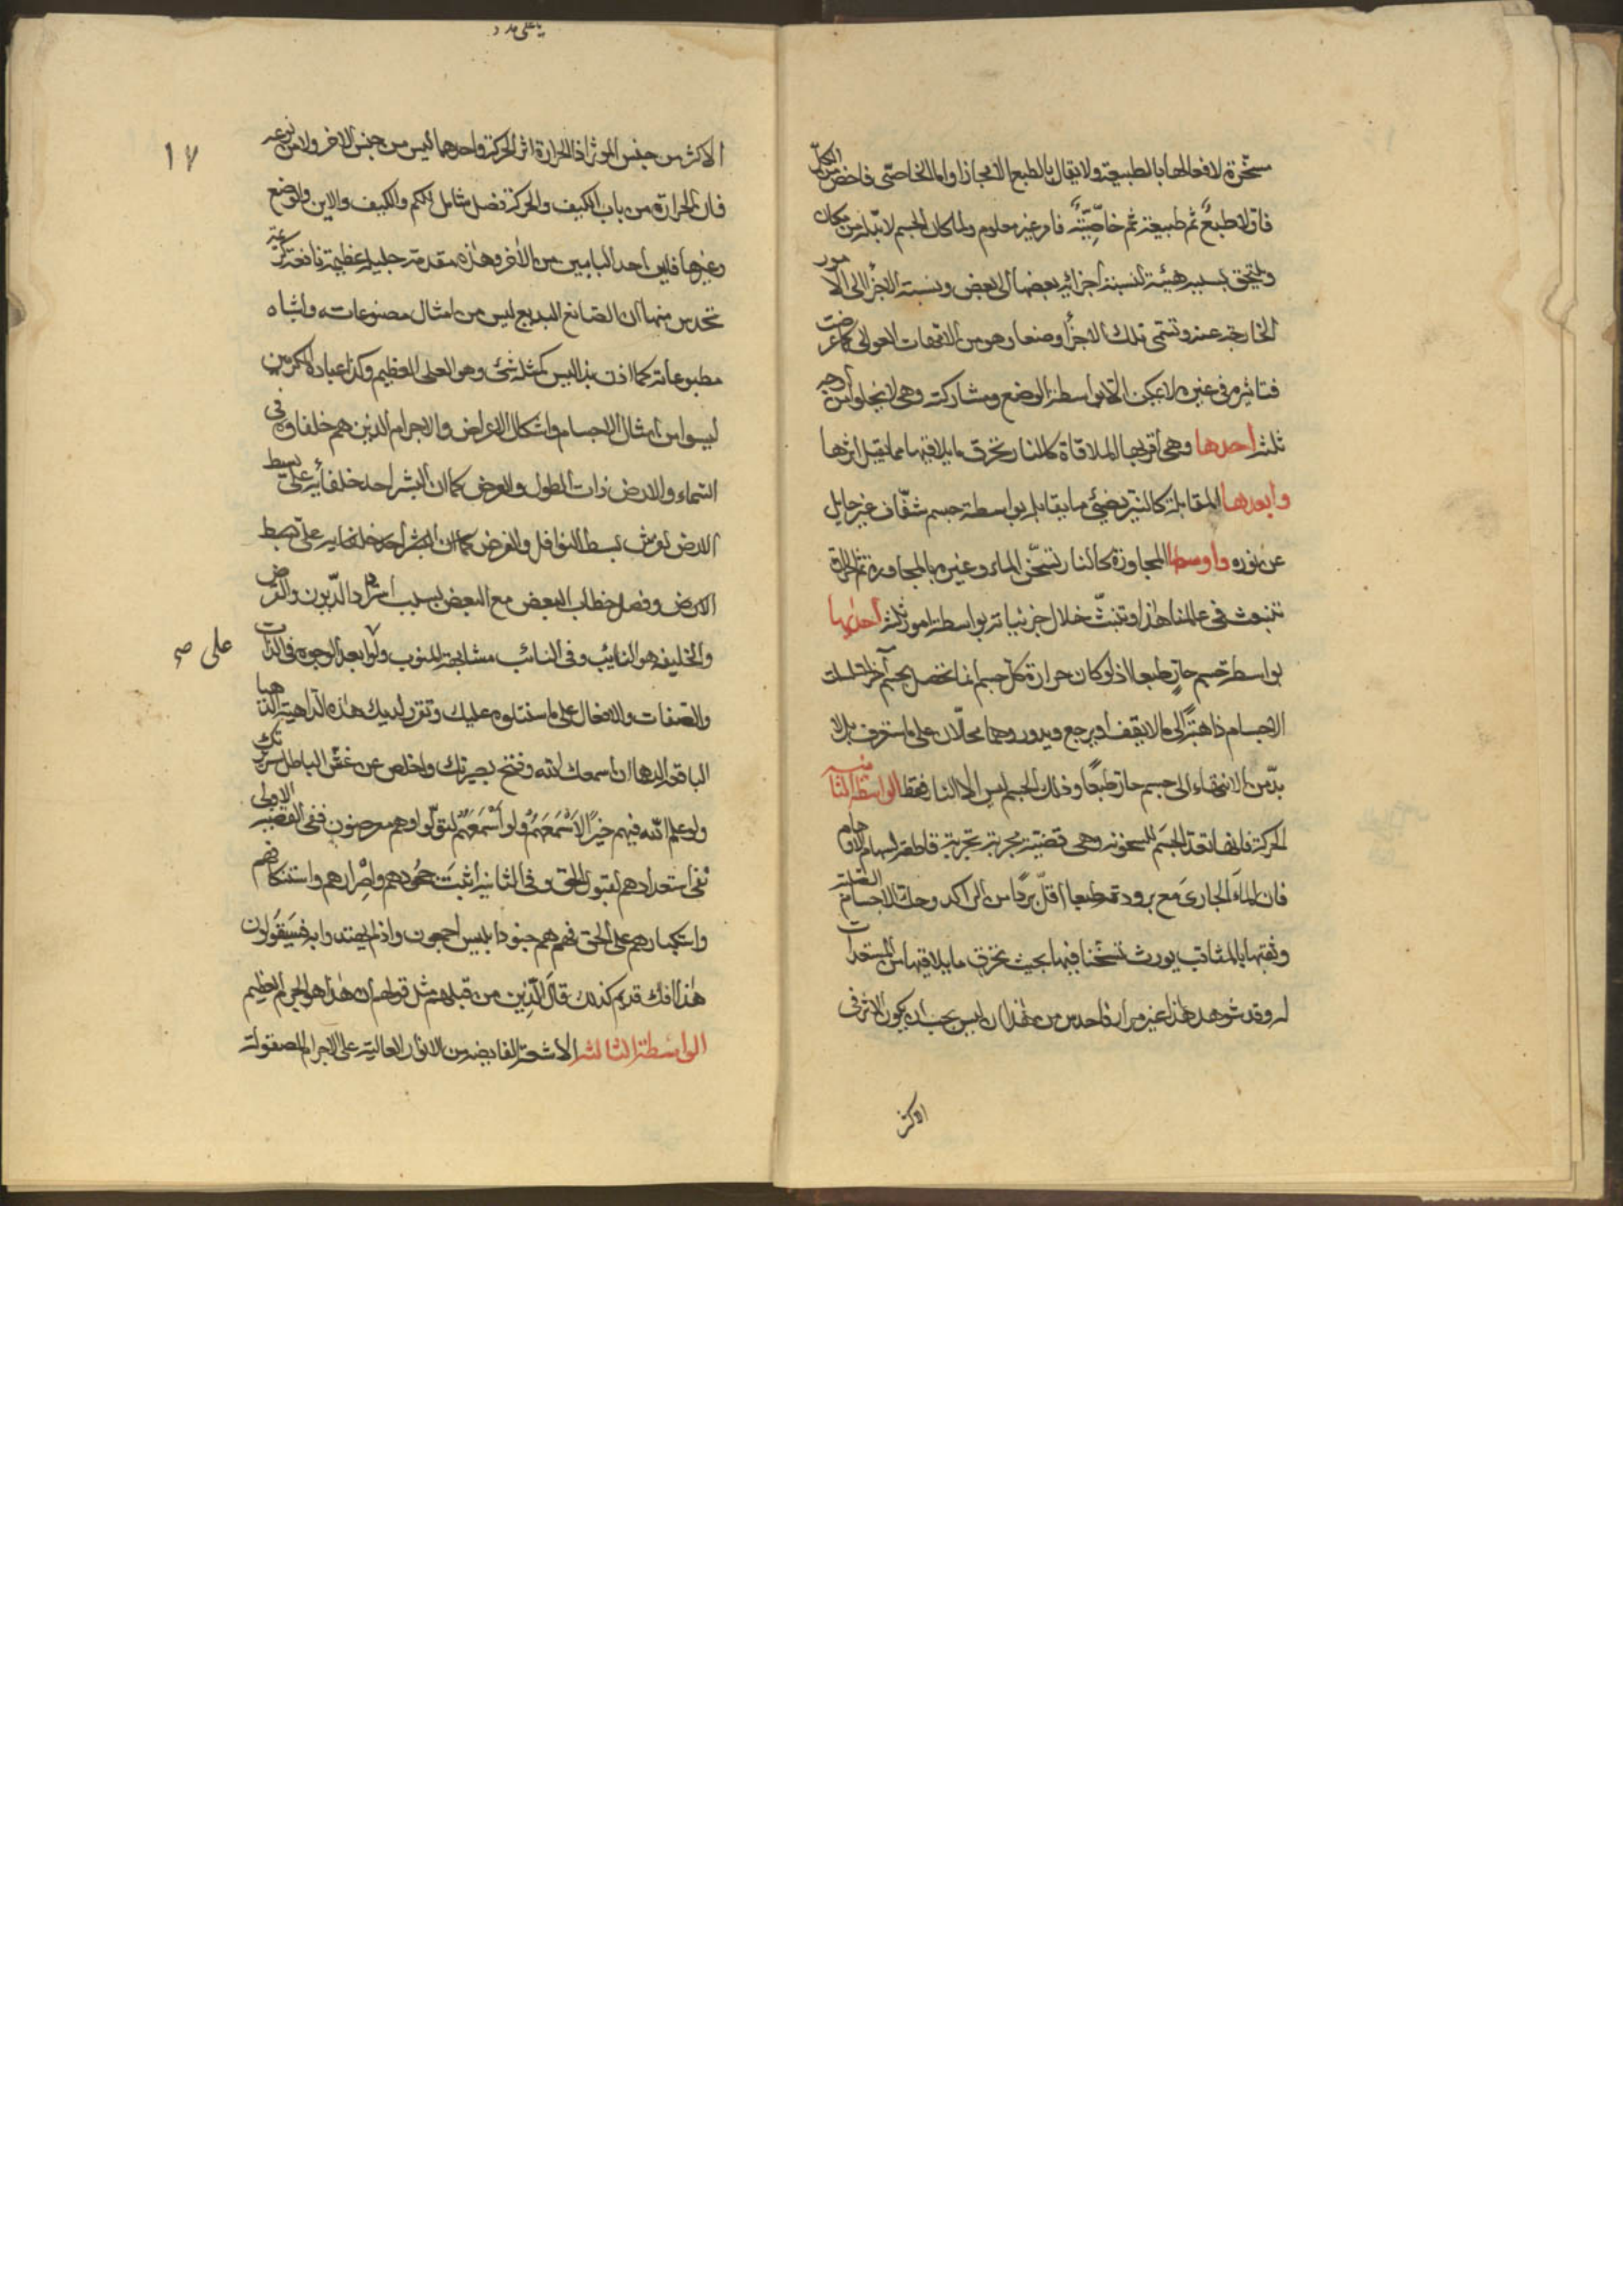 مسخّرة لافعالها بالطبيعة ولا يقال بالطبع الا مجازا واما الخاصّى فاخصّ من الكلّ
فاوّلا طبعٌ ثم طبيعة ثم خاصّيّة فامر غير معلوم ولما كان الجسم لا بدّ له من مكان
ويلحق بسببه هيئة لنسبة اجزائه بعضها الى بعض ونسبة الاجزاء الى الامور
الخارجة عنه وتسمى تلك الاجزاء وضعا وهو من الامهات العوالى كما عرضت
فتاثيره فى غيره لا يمكن الا بواسطة الوضع ومشاركته وهى لا يخلوا من اوجه
ثلثة احدها وهى اقربها الملاقاة كالنار تحرق ما يلاقيها مما يقبل اثرها
وابعدها المقابلة كالنيّر يضيئ ما يقابله بواسطة جسم شفّاف غير حايل
عن نوره واوسطها المجاورة كالنار تسخّن الماء وغيره بالمجاورة ثم الحرارة
تنبعث فى عالمنا هذا وتنبثّ خلال جزئياته بواسطة امور ثلثة احديها
بواسطة جسم حارّ طبعا اذ لو كان حرارة كلّ جسم انما تحصل بجسم آخر لتسلسلت
الاجسام ذاهبةً الى ما لا يقف او يرجع ويدور وهما محالان على ما ستعرف فلا
بدّ من الانتهاء الى جسم حارّ طبعًا وذلك الجسم ليس الا النار فقط الواسطة الثانية
الحركة فانها تعدّ الجسم للسخونة وهى قضية مجربة تجربة قاطعة لسهام الاوهام
فان الماءَ الجارىَ مع برودته طبعا اقلّ بردًا من الراكد وحكّ الاجسام الصلبة
وثقبها بالمثاقب يورث تسخّنا فيها بحيث تحرق ما يلاقيها من المستعدات
له وقد شوهد هذا غير مرة فاحدس من هذا ان ليس يجب ان يكون الاثر فى
الاكثر
يا على مدد
١٧
الاكثر من جنس الموثر اذ الحرارة اثر الحركة واحدهما ليس من جنس الاخر ولا من نوعه
فان الحرارة من باب الكيف والحركة فصل شامل للكم والكيف والاين والوضع
وغيرها فاين احد البابين من الاخر وهذه مقدمة جليلة عظيمة نافعة
تحدس منها ان الصانع البديع ليس من امثال مصنوعاته واشباه
مطبوعاته كما اذن بذا ليس كمثله شئ وهو العلى العظيم وكذا عباده المكرمين
ليسوا من امثال الاجسام واشكال الاعراض والاجرام الذين هم خلفاوه فى
السماء والارض ذات الطول والعرض كما ان البشر احد خلفائه على بسط
الارض لورث بسط النوافل والفرض كما ان البشر احد خلفايه على بسط
الارض وفصل خطاب البعض مع البعض بسبب استرداد الدّيون والقرض
والخليفة هو النايب وفى النائب مشابهة المنوب ولو ابعد الوجوه فى الذات
والصفات والافعال على ما سنتلوه عليك ونقرر لديك هذه الداهية الدهيا
الباقعة الدها ان اسمعك الله وفتح بصيرتك واخلص عن غشّ الباطل سريرتك
ولو علم الله فيهم خيرًا لاَسْمَعَهُمْ ولو اَسْمَعَهُمْ لتولّوا وهم معرضون ففى القضية الاولى
نفى استعدادهم لقبول الحق وفى الثانية اثبت جحودهم واِصْرارهم واستنكافهم
واستكبارهم على الحق فهم هم جنود ابليس اجمعون واذ لم يهتدوا به فَسَيَقُولون
هٰذا افك قديم كذلك قالَ الّذين من قبلهم مثل قولهم ان هذا هو الجرم العظيم
الواسطة الثالثة الاشعة الفايضة من الانوار العالية على الاجرام المصقولة
على صح